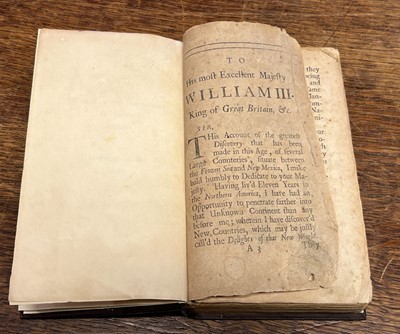 TO
His most Excellent Majesty
WILLIAM III.
King of Great Britain, &c.
SIR,
THis Account of the greatest
Discovery that has been
made in this Age, of several
Large Countries, situate between
the Frozen Sea and New Mexico, I make
bold humbly to Dedicate to your Majesty.
Having liv'd Eleven Years in
the Northern America, I have had an
Opportunity to penetrate farther into
that Unknown Continent than any
before me; wherein I have discover'd
New Countries, which may be justly
call'd the Delights of that New World.
A 3 They
they